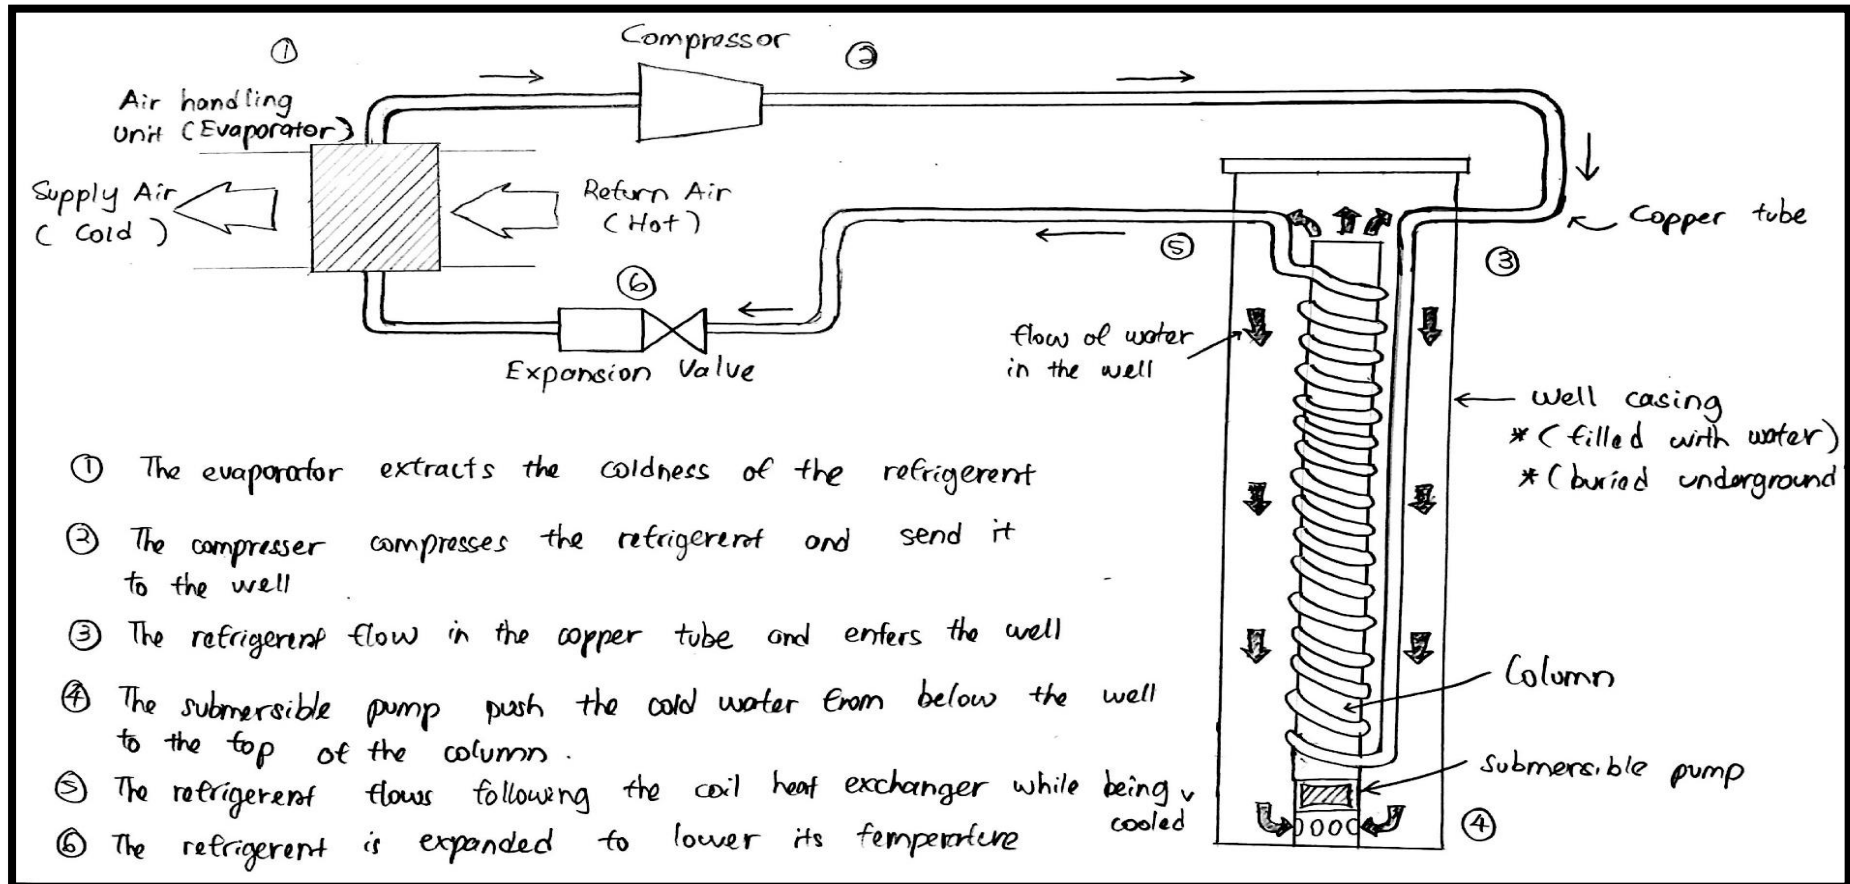 ①
Compressor
②
Air handling
unit (Evaporator)
Supply Air
( Cold )
Return Air
( Hot )
Copper tube
⑤
③
⑥
Expansion Valve
flow of water
in the well
well casing
* ( filled with water)
* ( buried underground
① The evaporator extracts the coldness of the refrigerent
② The compresser compresses the refrigerent and send it
to the well
③ The refrigerent flow in the copper tube and enters the well
④ The submersible pump push the cold water from below the well
to the top of the column.
⑤ The refrigerent flows following the coil heat exchanger while being
cooled
⑥ The refrigerent is expanded to lower its temperature
Column
submersible pump
④